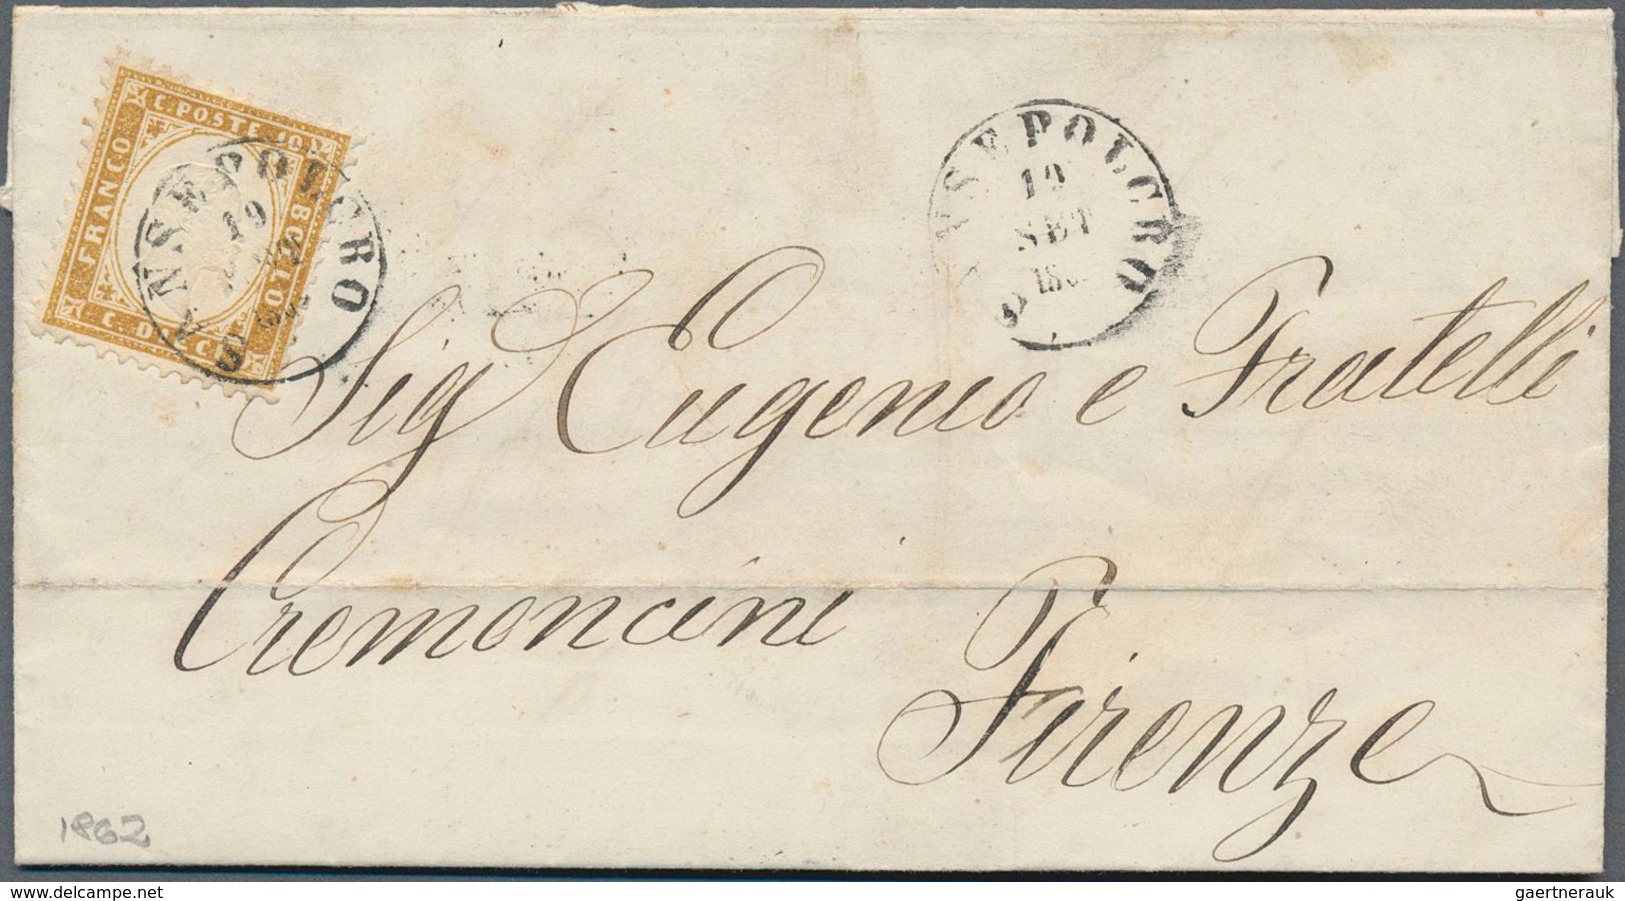 C. POSTE 10
FRANCO
BOLLO
C. DIECI
SANSEPOLCRO
19
SANSEPOLCRO
19
SET
Sig Eugenio e Fratelli
Cremoncini
Firenze
1862
www.delcampe.net
gaertnerauk